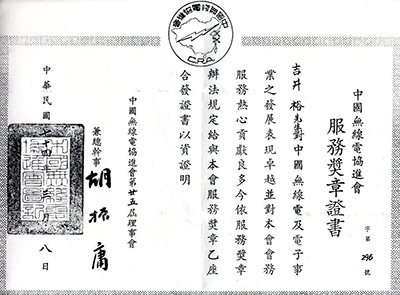 中國無線電協進會
C.R.A.
字第 296 號
中國無線電協進會
服務獎章證書
吉井 裕先生對中國無線電及電子事
業之發展表現卓越並對本會會務
服務熱心貢獻良多今依服務獎章
辦法規定給與本會服務獎章乙座
合發證書以資證明
中國無線電協進會第廿五屆理事會
兼總幹事 胡振庸
中華民國七十四年 月 八日